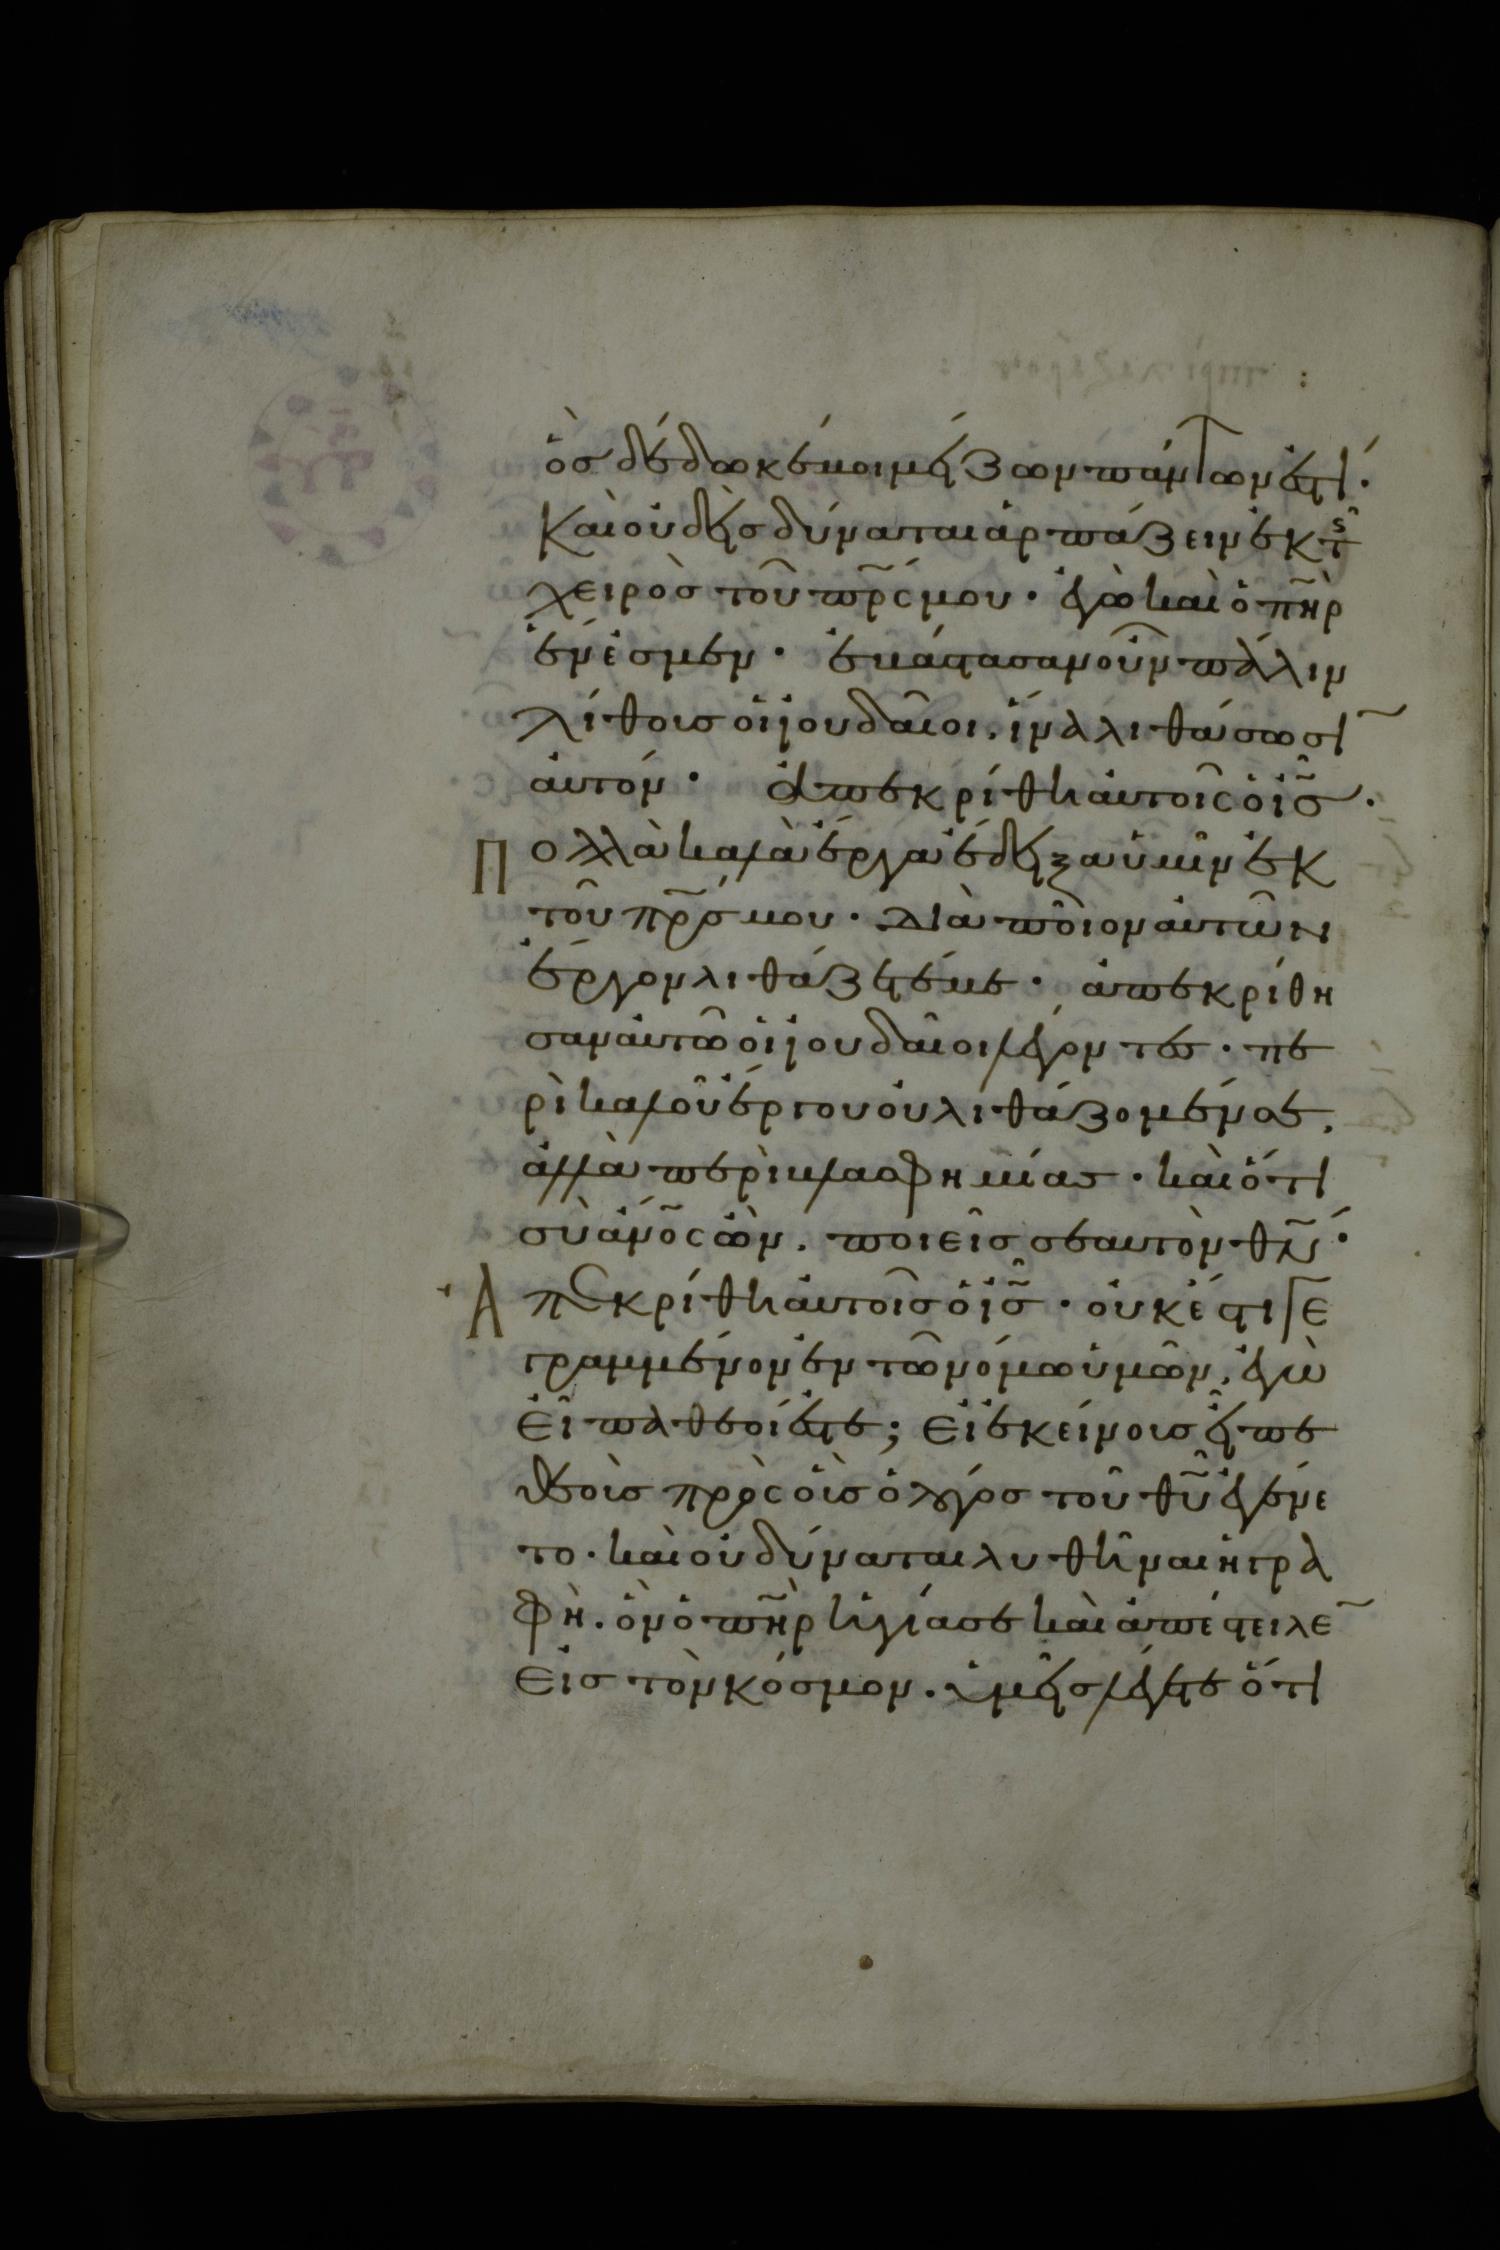 ὃς δέδωκέ μοι μείζων πάντων ἐστί·
Καὶ οὐδεὶς δύναται ἁρπάζειν ἐκ τῆς
χειρὸς τοῦ πρ̅ς μου· ἐγὼ καὶ ὁ πη̅ρ
ἕν ἐσμεν· ἐβάστασαν οὖν πάλιν
λίθους οἱ ἰουδαῖοι. ἵνα λιθάσωσι̅
αὐτόν· Ἀπεκρίθη αὐτοῖς ὁ ι̅ς·
Πολλὰ καλὰ ἔργα ἔδειξα ὑμῖν ἐκ
τοῦ πρ̅ς μου. Διὰ ποῖον αὐτῶν
ἔργον λιθάζετέ με· ἀπεκρίθη
σαν αὐτῶ οἱ ἰουδαῖοι λέγοντες· πε
ρὶ καλοῦ ἔργου οὐ λιθάζομέν σε,
ἀλλὰ περὶ βλασφημίας· καὶ ὅτι
σὺ ἄν̅ο̅ς ὢν. ποιεῖς σεαυτὸν θ̅ν·
Ἀπεκρίθη αὐτοῖς ὁ ι̅ς· οὐκ ἔστι γε
γραμμένον ἐν τῶ νόμω ὑμῶν, ἐγὼ
εἶπα θεοί ἐστε; Εἰ ἐκείνους εἶπε
θεοὺς πρὸς οὓς ὁ λόγος τοῦ θ̅υ ἐγένε
το· καὶ οὐ δύναται λυθῆναι ἡ γρα
φὴ. ὃν ὁ πη̅ρ ἡγίασε καὶ ἀπέστειλε̅
εἰς τὸν κόσμον. ὑμεῖς λέγετε ὅτι